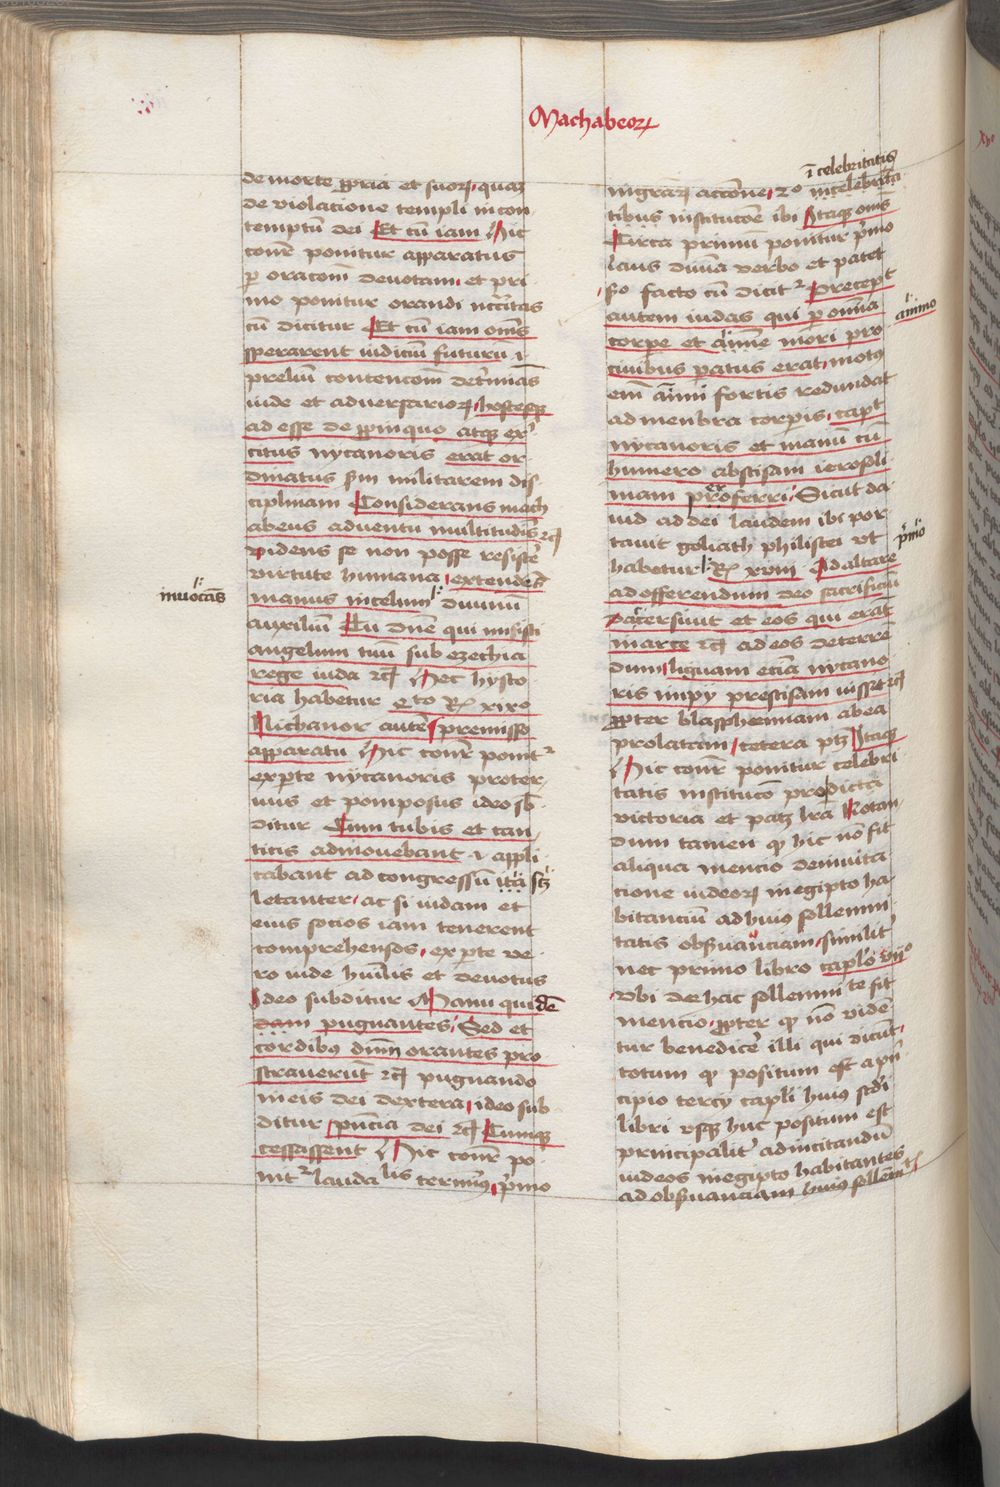 Machabeoꝝ
de morte ꝓpria et suoꝝ quaꝫ
de violacione templi incon
temptū dei Et cū iam Hic
conr̄ ponitur apparatus
ꝑ oracōm deuotam et pri
mo ponitur orandi nccītas
cū dicitur Et cū iam om̄s
sperarent iudiciū futurū i
preliū contencōm det̄mīas
iude et aduersarioꝝ hostesqꝫ
adesse de ꝓpinquo atqꝫ ex̄
citus nycanoris erat or
dinatus scdm militarem dis
ciplinam Considerans mach
abeus aduentū multitudīs ꝛcꝫ
videns se non posse resistē
virtute humana extendēs
inuocās
manus in celum diuinū
auxiliū Tu dn̄e qui misisti
angelum tuū sub ezechia
rege iuda ꝛcꝫ Hec hysto
ria habetur 4to Rꝫ xixo
Nichanor autē premisso
apparatu Hic conr̄ ponitr
ex ꝑte nycanoris proter
uus et pomposus ideo sb̄
ditur Cum tubis et can
ticis admouebant i appli
cabant ad congressū ita scꝫ
letanter ac si iudam et
eius socios iam tenerent
comprehensos ex ꝑte ve
ro iude hūilis et deuotus
Ideo subditur Manu quidē
dam pugnantes Sed et
cordibꝰ dn̄m orantes pro
strauerūt ꝛcꝫ pugnando
in eis dei dextera ideo sub
ditur pn̄cia dei ꝛcꝫ Cumqꝫ
cessassent Hic conr̄ po
nitr laudabilis termīꝰ p̄mo
ī celebritatis
in graꝝ accōne 2o in celebrita
tibus institucōe ibi Itaqꝫ om̄s
Circa primū ponitur p̄mo
laus diuīa verbo et patet
so facto cū dicitr Precept
autem iudas qui ꝑ omīa
animo
corpe et aīme mori pro
ciuibus ꝑatus erat motꝰ
em̄ aīmi fortis redundat
ad menbra corꝑis capt
nycanoris et manū cū
humero abscisam ierosoli
mam proferri Sicut da
ex
uid ad dei laudem ibi por
tauit goliath philistei vt
p̄mo
habetur Rꝫ xvii Ad altare
ad offerendum deo sacrificiū
Accersiuit et eos qui erāt
in arce ꝛcꝫ ad eos deterrē
dum liguam eciā nycano
ris impy prescisam iussit ꝛcꝫ
ꝓpter blasphemiam ab ea
prolatam cetera ptꝫ Itaqꝫ
Hic conr̄ ponitur celebri
tatis institucō pro dicta
victoria et patꝫ lr̄a Notan
dum tamen qꝫ hic nō fit
aliqua mencio de inuita
cione iudeoꝝ in egipto ha
bitanciū ad huiꝰ sollemni
tatis obẜuanciam similit̄
nec primo libro caplo viio
vbi de hac sollemnite fit
mencio ꝓpter qꝫ nō viden
tur benedicē illi qui dicūt
totum qꝫ positum est a pn̄
cipio tercy capli huiꝰ scd̄i
libri vsqꝫ huc positum est
principalit̄ ad incitandū
iudeos in egipto habitantes
ad obẜuanciam huiꝰ sollēnitꝫ